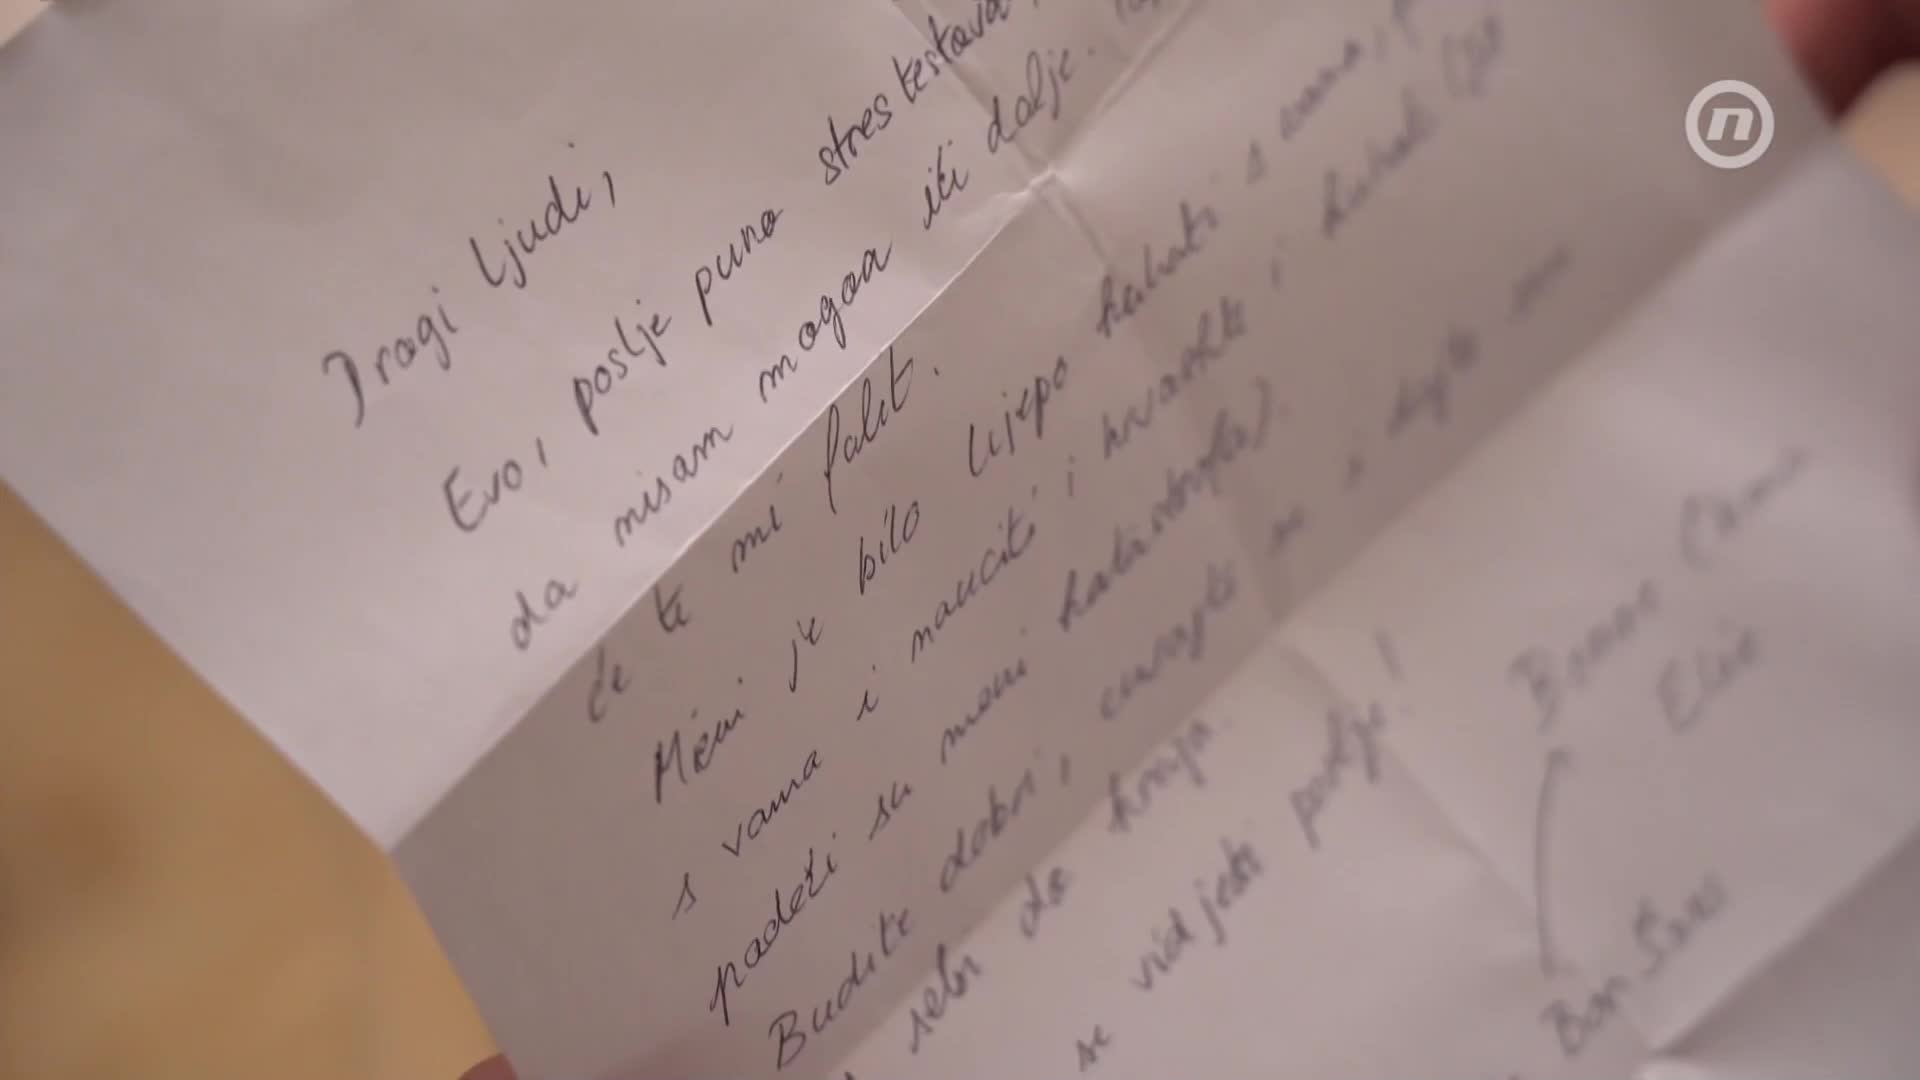 Dragi ljudi,
Evo, poslje puno stres testova
da nisam mogaa iti dalje.
će te mi falit.
Meni je bilo lijepo kuhati s vama,
s vama i naučiti i hrvatski i kuhat
padeži su meni katastrofa).
Budite dobri, čuvajte se i dajte
sebi do kraja.
se vidjeti poslje!
Bonne
Elie
Bon Šans
n